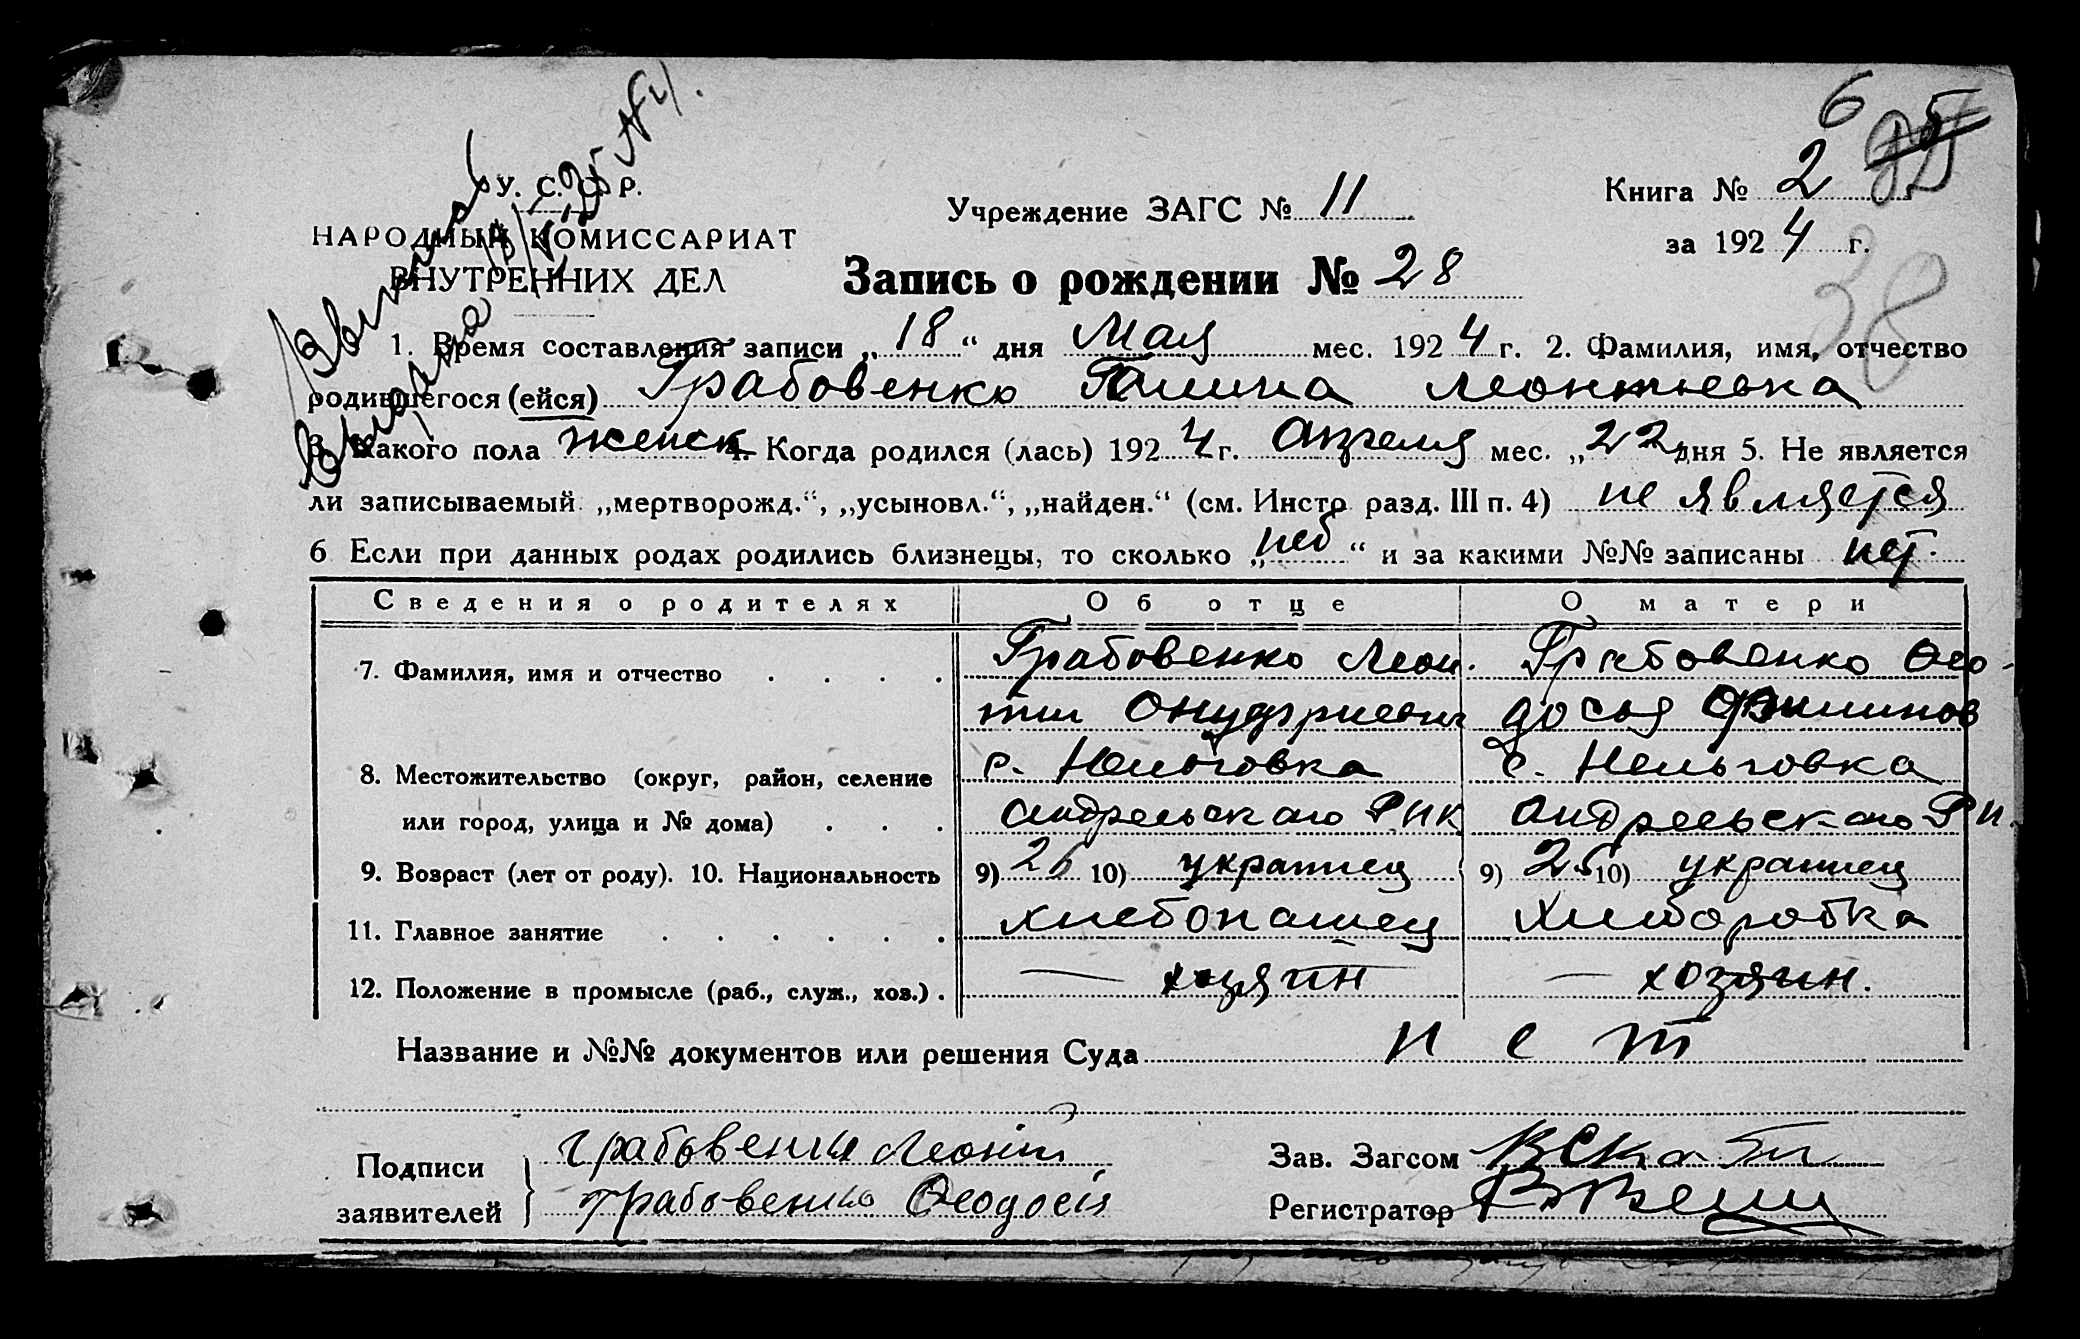 6
У. С. С. Р.
Учреждение ЗАГС № 11
Книга № 2
НАРОДНЫЙ КОМИССАРИАТ
за 1924 г.
ВНУТРЕННИХ ДЕЛ
Запись о рождении № 28
38
1. Время составления записи „18“ дня Мая мес. 1924 г. 2. Фамилия, имя, отчество
родившегося (ейся) Грабовенко Галина Леонтьевна
3. Какого пола женск 4. Когда родился (лась) 1924 г. Апреля мес. „22 дня 5. Не является
ли записываемый „мертворожд.“, „усыновл.“, „найден.“ (см. Инстр разд. III п. 4) не является
6 Если при данных родах родились близнецы, то сколько „ “ и за какими №№ записаны нет.
Сведения о родителях Об отце О матери
7. Фамилия, имя и отчество Грабовенко Леон- Грабовенко Ѳео-
тий Онуфриевич досья
8. Местожительство (округ, район, селение с. Нельговка с. Нельговка
или город, улица и № дома) Андреевскаго РИК Андреевскаго РИ.
9. Возраст (лет от роду). 10. Национальность 9) 26 10) украинец 9) 25 10) украинец
11. Главное занятие хлебопашец Хлеборобка
12. Положение в промысле (раб., служ., хоз.) — хозяин — хозяин.
Название и №№ документов или решения Суда нет
Подписи Грабовенко Леонтій Зав. Загсом
заявителей Грабовенко Ѳеодосія Регистратор